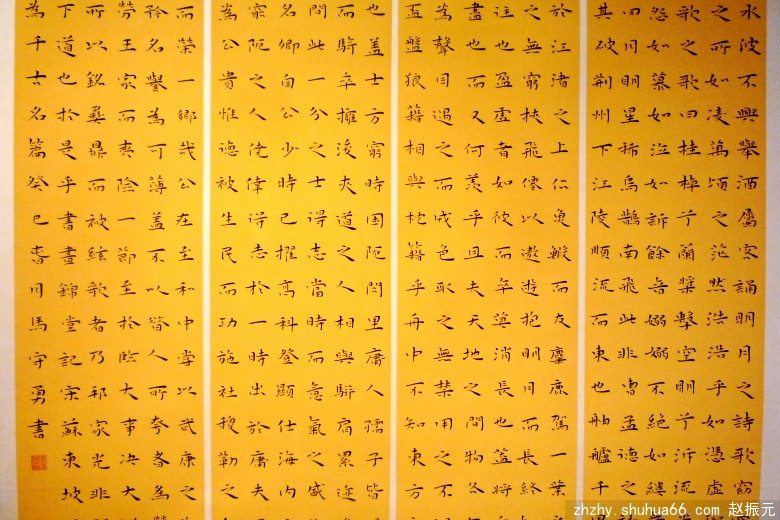 水波不興舉酒屬客誦明月之詩歌窈
之所如凌萬頃之茫然浩浩乎如憑虛
歌之歌曰桂棹兮蘭槳擊空明兮泝流
怨如慕如泣如訴餘音嫋嫋不絕如縷
曰月明星稀烏鵲南飛此非曹孟德之
其破荊州下江陵順流而東也舳艫千
於江渚之上侣魚鰕而友麋鹿駕一葉
之無窮挾飛僊以遨遊抱明月而長終
往也盈虛者如彼而卒莫消長也蓋將
盡也而又何羨乎且夫天地之間物各
為聲目遇之而成色取之無禁用之不
盃盤狼藉相與枕籍乎舟中不知東方
也蓋士方窮時困阨閭里庸人孺子皆
而騎卒擁後夾道之人相與駢肩累迹
間此一介之士得志當時而意氣之盛
名卿自公少時已擢高科登顯仕海內
窮阨之人僥倖得志於一時出於庸夫
為公貴惟德被生民而功施社稷勒之
而榮一鄉哉公在至和中嘗以武康之
矜名譽為可薄蓋不以昔人所夸者為
勞王家而夷險一節至於臨大事決大
所以銘彝鼎而被絃歌者乃邦家光非
下道也於是乎書晝錦堂記宋蘇東坡
為千古名篇癸巳春月馬守勇書
zhzhy.shuhua66.com 赵振元